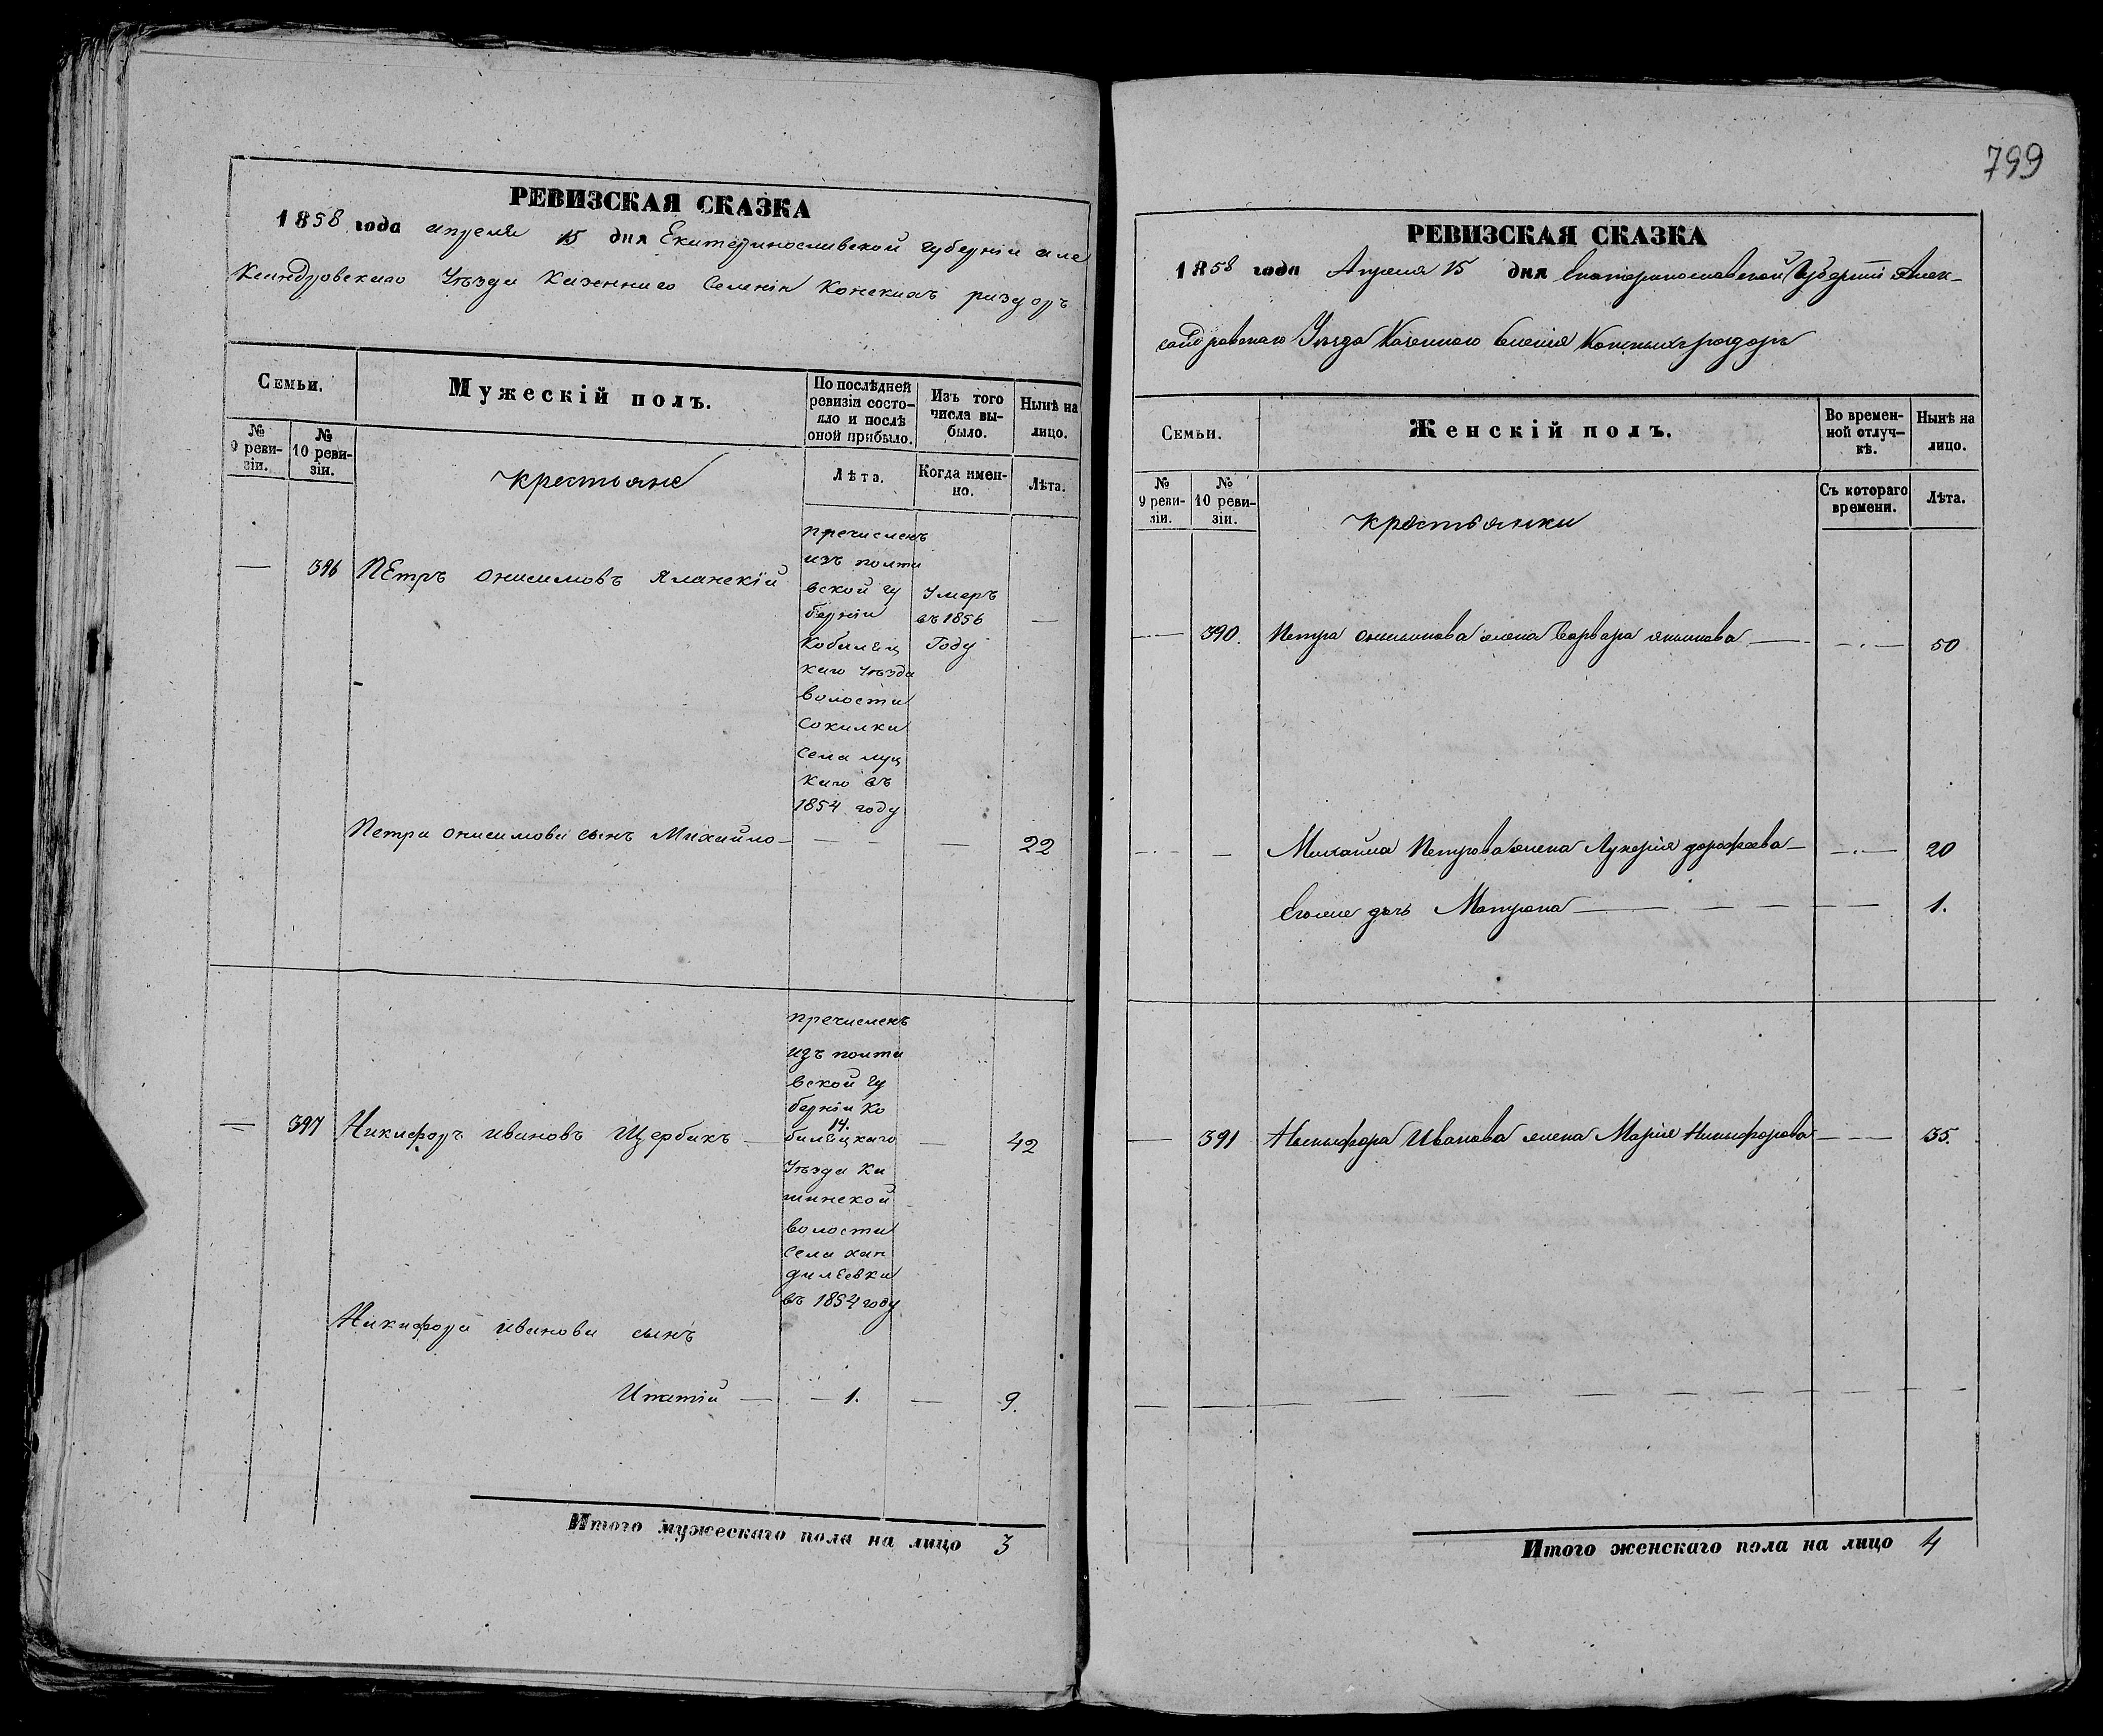 РЕВИЗСКАЯ СКАЗКА
1858 года апреля 15 дня Екатеринославской губерніи але
Ксандровскаго Уѣзда Казеннаго Селенія Конскихъ раздоръ
Семьи.
Мужескій полъ.
По послѣдней ревизіи состо-
яло и послѣ
оной прибыло.
Изъ того
числа вы-
было.
Нынѣ на
лицо.
№
9 реви-
зіи.
№
10 реви-
зіи.
крестьяне
Лѣта.
Когда имен-
но.
Лѣта.
— 396 ПЕтръ онисимовъ Яланскій
пречисленъ
изъ полта
вской гу
берніи
Кобилец
каго уѣзда
волости
Сокилки
села луц
каго въ
1854 году
Умеръ
въ 1856
Году
—
Петра онисимова сынъ Михайло — — — — 22
— 397 Никифоръ ивановъ Щербакъ —
пречисленъ
изъ полта
вской гу
берніи Ко
14.
билецкаго
Уѣзда Ки
шинской
волости
села хан
дилеевки
въ 1854 году
— 42
Никифора иванова сынъ
Игнатій — — 1. — 9.
Итого мужескаго пола на лицо 3
799
РЕВИЗСКАЯ СКАЗКА
1858 года Апреля 15 дня Екатеринославской Губерніи Алек-
сандровскаго Уѣзда Казеннаго Селенія Конскихъ раздоръ
Семьи.
Женскій полъ.
Во времен-
ной отлуч-
кѣ.
Нынѣ на
лицо.
№
9 реви-
зіи.
№
10 реви-
зіи.
крестьянки
Съ котораго
времени.
Лѣта.
— 390. Петра Онисимова жена Варвара якимова — — 50
— — Михайла Петрова жена Лукерія дорофеева — — 20
Егоже дочь Матрона — — — — — 1.
— 391 Никифора Иванова жена Марія Никифорова — — 35.
Итого женскаго пола на лицо 4